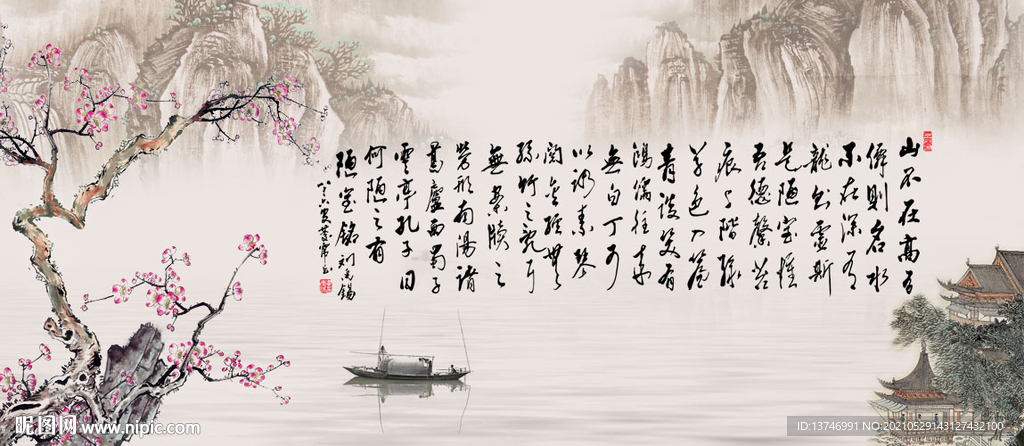 山不在高有
僊则名水
不在深有
龍则靈斯
是陋室惟
吾德馨苔
痕上階緑
草色入簾
青談笑有
鴻儒往来
無白丁可
以調素琴
閲金經無
絲竹之乱耳
無案牘之
勞形南陽諸
葛廬西蜀子
雲亭孔子曰
何陋之有
陋室銘刘禹锡
昵图网 www.nipic.com
ID:13746991 NO:20210529143127432100